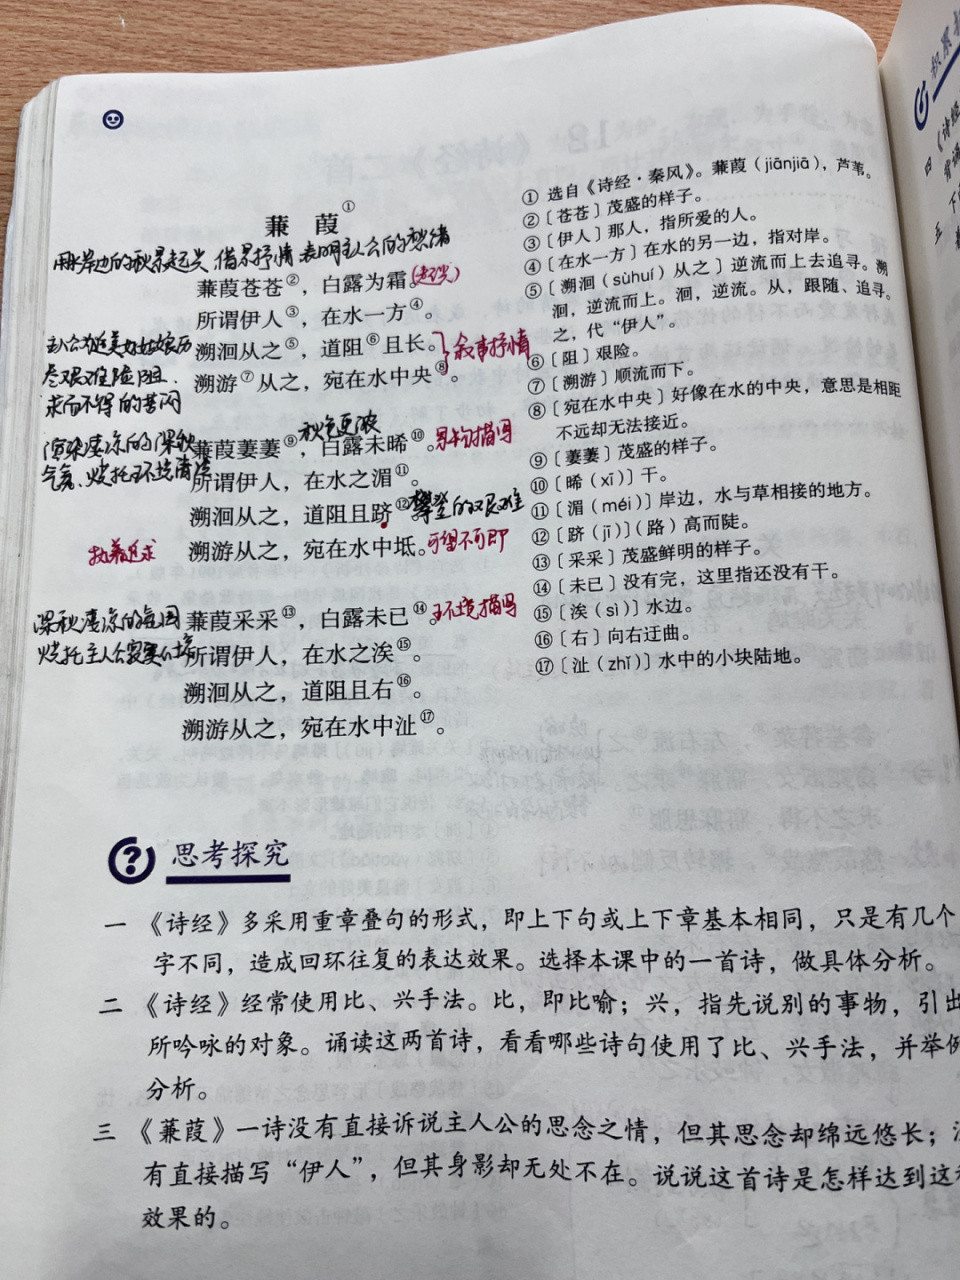 蒹 葭①
用水岸边的秋景起兴,借景抒情,表明主人公的愁绪
蒹葭苍苍②，白露为霜。(起兴)
所谓伊人③，在水一方④。
溯洄从之⑤，道阻⑥且长。
叙事抒情
溯游⑦从之，宛在水中央⑧。
主人公为追美好姑娘历
尽艰难险阻.
求而不得的苦闷
秋色更浓
蒹葭萋萋⑨，白露未晞⑩。景物描写
渲染凄凉的深秋
气氛、烘托环境清凄
所谓伊人，在水之湄⑪。
溯洄从之，道阻且跻⑫。攀登的艰难
溯游从之，宛在水中坻。可望不可即
执着追求
蒹葭采采⑬，白露未已⑭。环境描写
深秋凄凉的氛围
烘托主人公寂寞心境
所谓伊人，在水之涘⑮。
溯洄从之，道阻且右⑯。
溯游从之，宛在水中沚⑰。
① 选自《诗经·秦风》。蒹葭（jiānjiā），芦苇。
②〔苍苍〕茂盛的样子。
③〔伊人〕那人，指所爱的人。
④〔在水一方〕在水的另一边，指对岸。
⑤〔溯洄（sùhuí）从之〕逆流而上去追寻。溯
洄，逆流而上。洄，逆流。从，跟随、追寻。
之，代“伊人”。
⑥〔阻〕艰险。
⑦〔溯游〕顺流而下。
⑧〔宛在水中央〕好像在水的中央，意思是相距
不远却无法接近。
⑨〔萋萋〕茂盛的样子。
⑩〔晞（xī）〕干。
⑪〔湄（méi）〕岸边，水与草相接的地方。
⑫〔跻（jī）〕（路）高而陡。
⑬〔采采〕茂盛鲜明的样子。
⑭〔未已〕没有完，这里指还没有干。
⑮〔涘（sì）〕水边。
⑯〔右〕向右迂曲。
⑰〔沚（zhǐ）〕水中的小块陆地。
思考探究
一 《诗经》多采用重章叠句的形式，即上下句或上下章基本相同，只是有几个
字不同，造成回环往复的表达效果。选择本课中的一首诗，做具体分析。
二 《诗经》经常使用比、兴手法。比，即比喻；兴，指先说别的事物，引出
所吟咏的对象。诵读这两首诗，看看哪些诗句使用了比、兴手法，并举例
分析。
三 《蒹葭》一诗没有直接诉说主人公的思念之情，但其思念却绵远悠长；
有直接描写“伊人”，但其身影却无处不在。说说这首诗是怎样达到这
效果的。
积累
四 《诗经
背诵
五 下